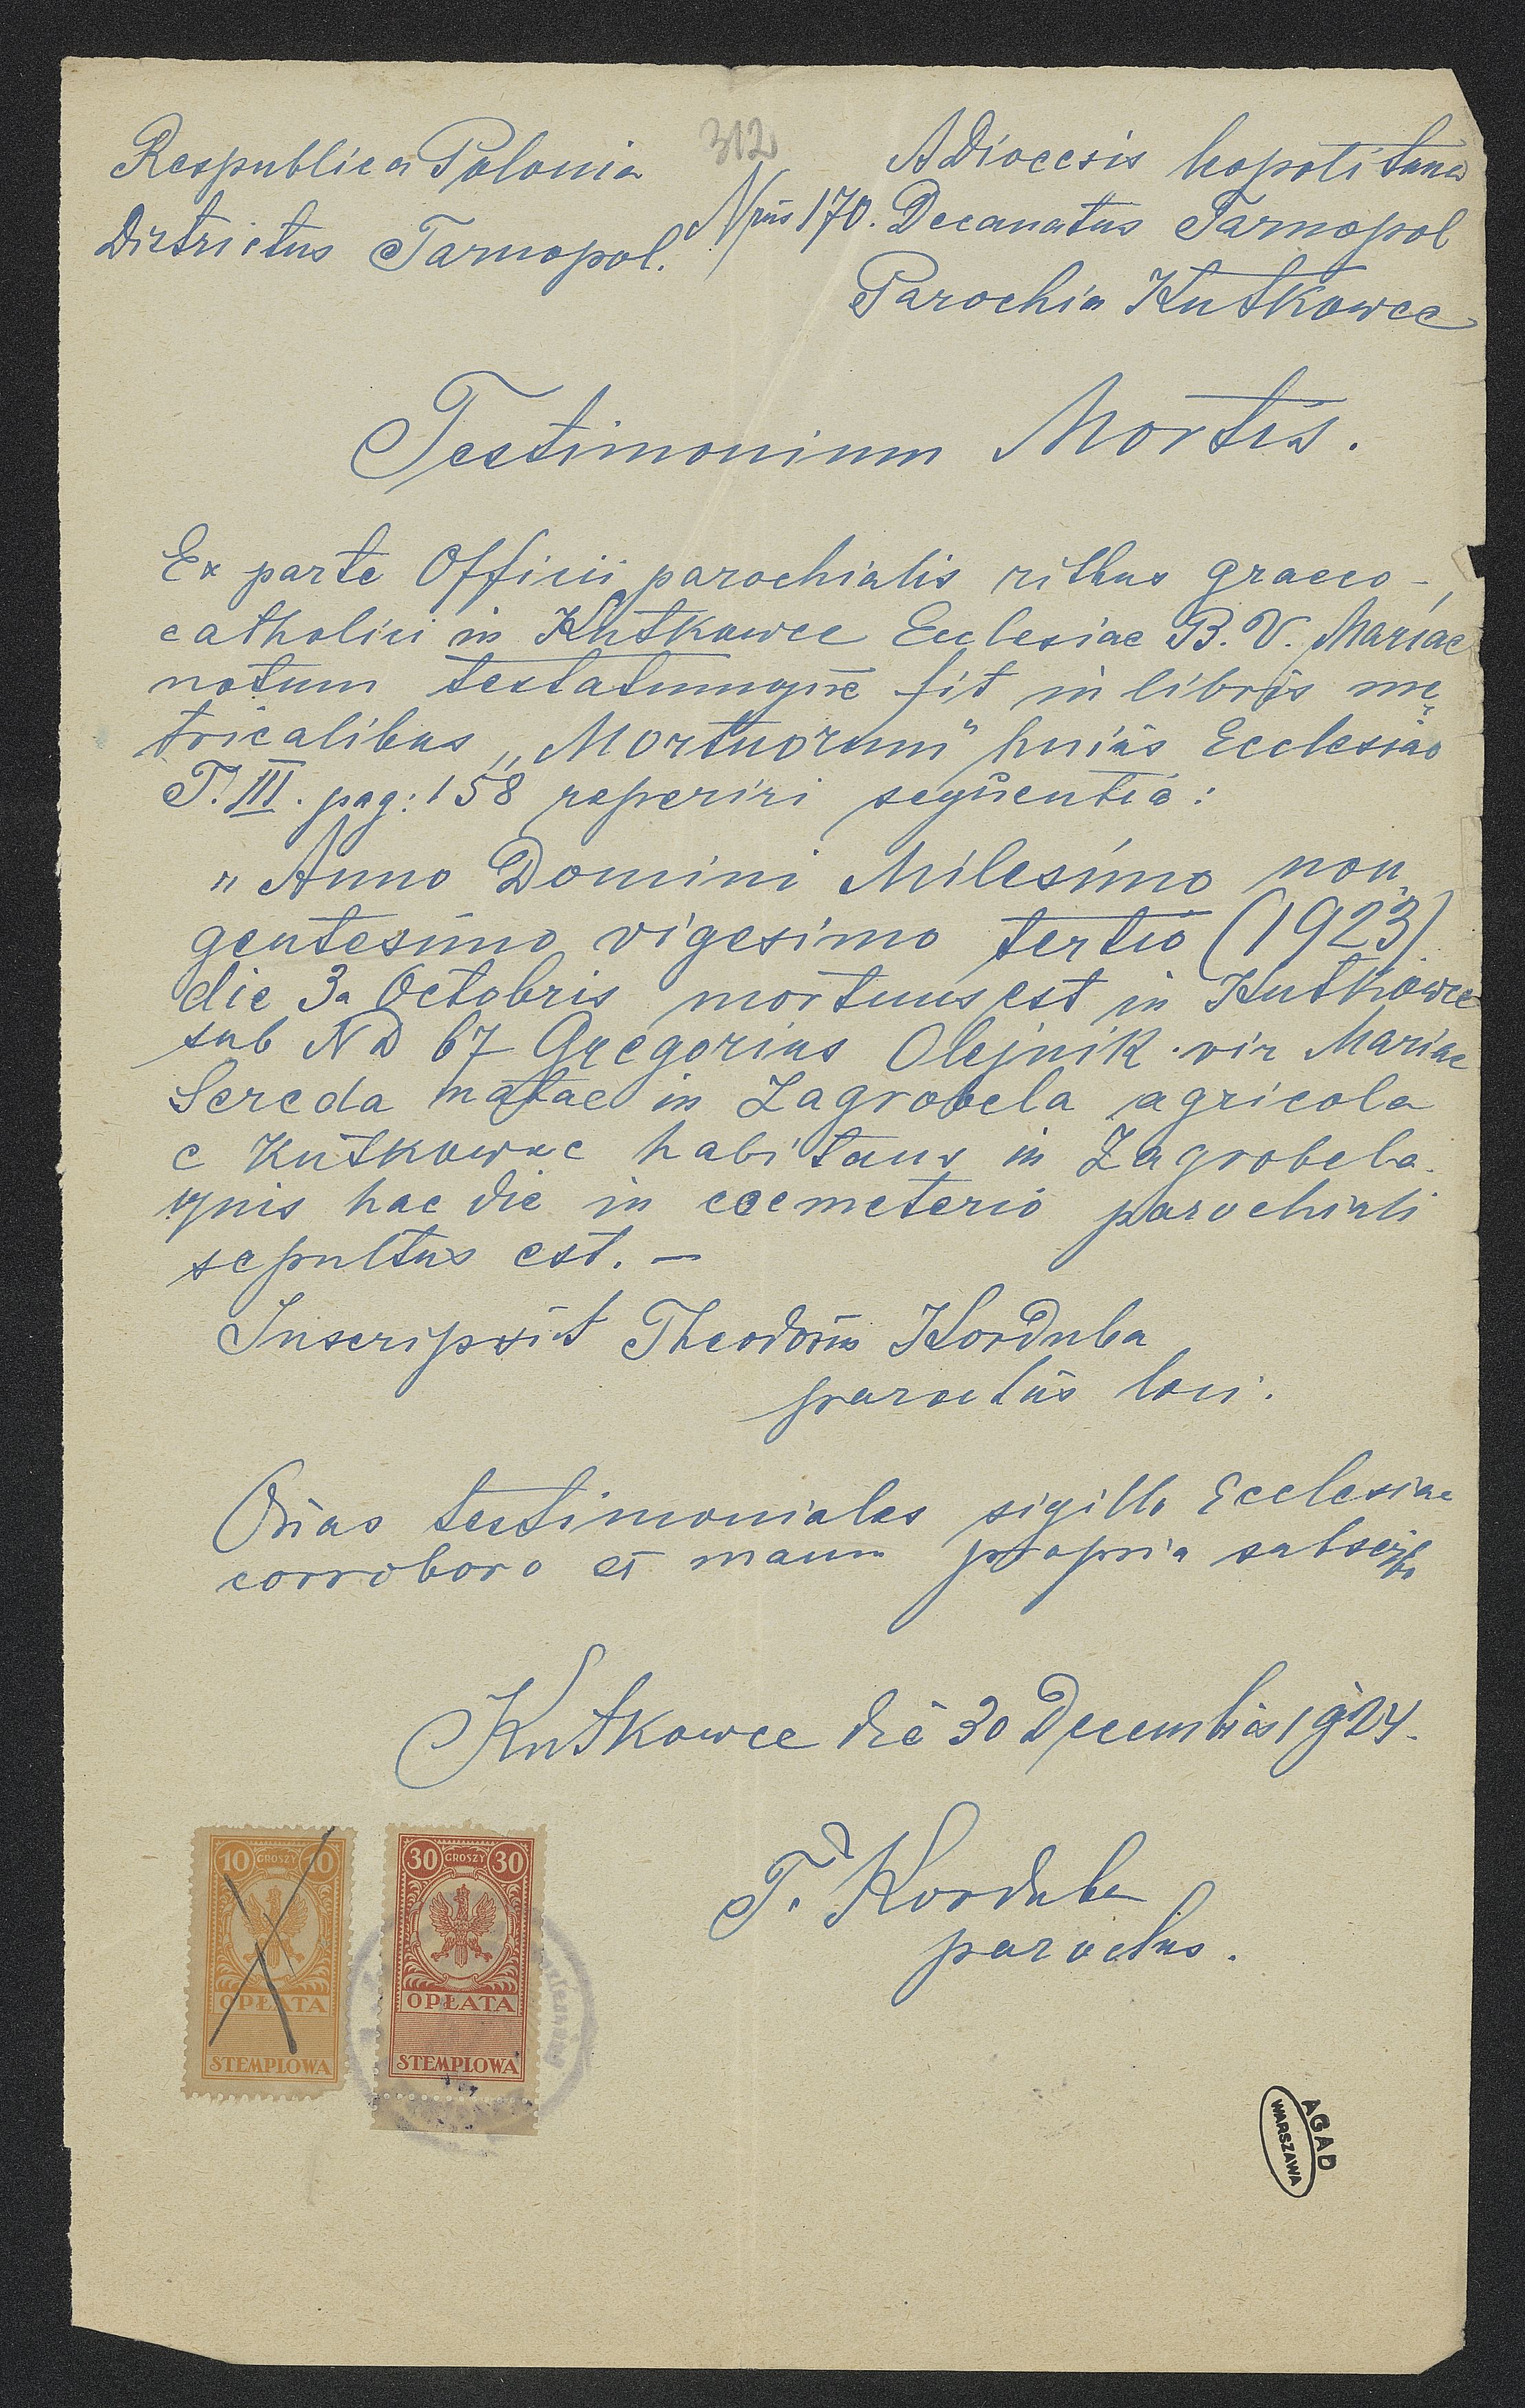 312
Respublica Polonia
Districtus Tarnopol.
Nrus 170.
ADiocesis Leopolitana
Decanatus Tarnopol
Parochia Kutkowce
Testimonium Mortis.
Ex parte Officii parochialis rithus graeco-
catholici in Kutkowce Ecclesiae B. V. Mariae
notum testatumque fit in libris me-
tricalibus „Mortuorum" huius Ecclesiae
T. III. pag: 158 reperiri sequentia:
„Anno Domini Milesimo non-
gentesimo vigesimo tertio (1923)
die 3a Octobris mortuus est in Kutkowce
sub ND 67 Gregorius Olejnik vir Mariae
Sereda natae in Zagrobela agricola
e Kutkowce habitans in Zagrobela
quis hac die in coemeterio parochiali
sepultus est. —
Inscripsit Theodorus Korduba
parochus loci.
testimoniales sigillo Ecclesiae
corroboro et manu propria subscribo
Kutkowce die 30 Decembris 1924.
T. Korduba
parochus.
10 GROSZY 10
OPŁATA
STEMPLOWA
30 GROSZY 30
OPŁATA
STEMPLOWA
AGAD
WARSZAWA